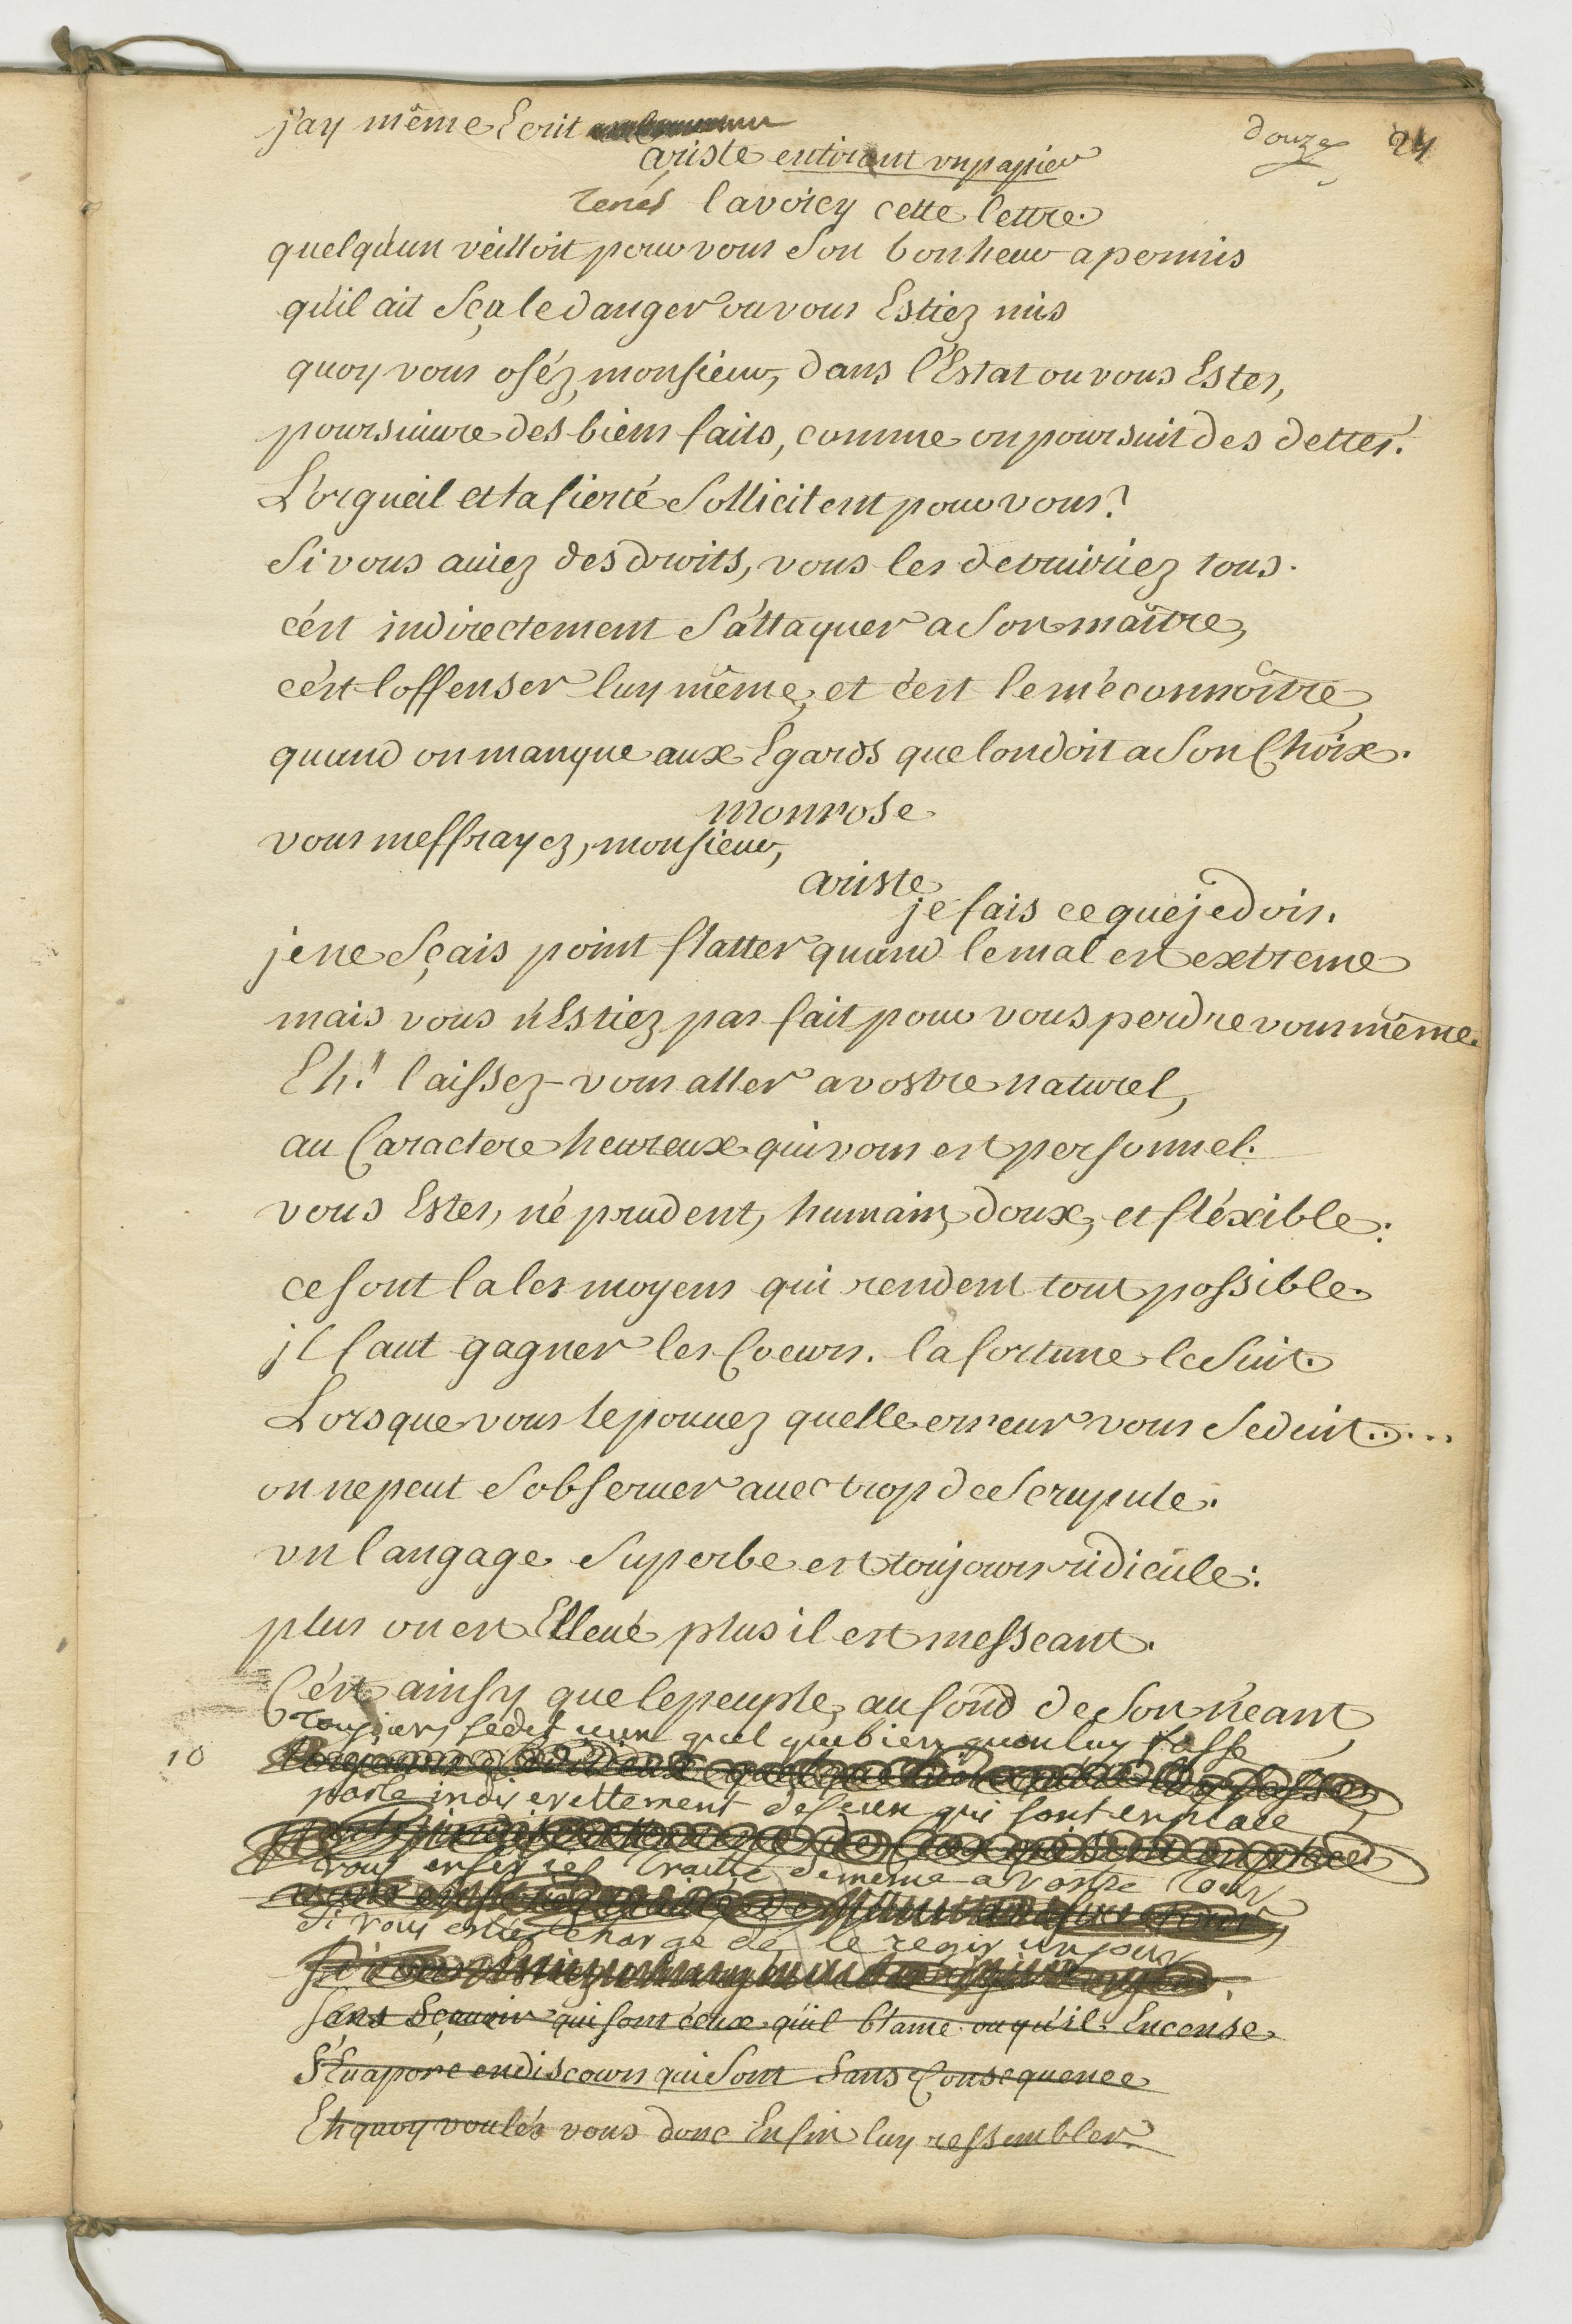 j'ay même Ecrit
douze 24
ariste entirant un papier
tenés la voicy cette lettre.
quelqu'un veilloit pour vous Son bonheur a permis
qu'il ait Sçu le danger ou vous Estiez mis
quoy vous oséz, monsieur, dans l'Estat ou vous Estes,
poursuiure des bienfaits, comme on poursuit des dettes.
L'orgueil et la fierté Sollicitent pour vous?
Si vous auiez des droits, vous les detruiriez tous.
c'est indirectement S'attaquer a Son maître,
c'est l'offenser luy même, et c'est le méconnoître,
quand on manque aux Egards que l'on doit a Son Choix.
monrose
vous m'effrayez, monsieur,
ariste
je fais ce que je dois.
je ne Sçais point flatter quand le mal est extreme
mais vous n'Estiez pas fait pour vous perdre vous même.
Eh! laissez-vous aller a vostre naturel,
au Caractere heureux qui vous est personnel.
vous Estes, né prudent, humain, doux, et fléxible:
ce sont la les moyens qui rendent tout possible.
jl faut gagner les Coeurs. la fortune le Suit.
Lorsque vous le pouuez quelle erreur vous Seduit.....
on ne peut S'obseruer auec trop de Scrupule.
un langage Superbe est toujours ridicule:
plus on est Elleué plus il est messeant.
C'est ainsy que le peuple, au fond de Son néant,
toujours sedit quel que bien quon luy fasse
10
parle indiscrettement de ceux qui sont en place
vous en seriez traitté de meme a vostre tour
Si vous estiez chargé de le regir un jour
Sans Sçauoir qui sont ceux qu'il blame ou qu'il Encense
S'Euapore en discours qui Sont Sans Consequence
Eh quoy voulés vous donc Enfin luy ressembler.